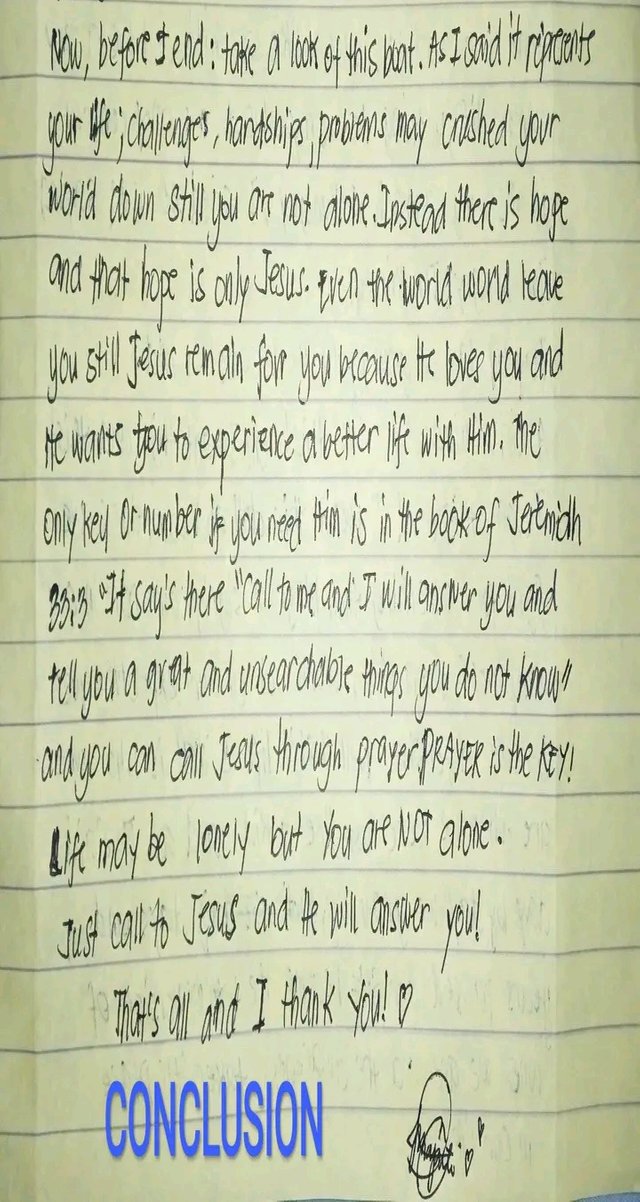 Now, before I end: take a look of this boat. As I said it represents
your life; challenges, hardships, problems may crushed your
world down still you are not alone. Instead there is hope
and that hope is only Jesus. Even the world world leave
you still Jesus remain for you because He loves you and
He wants you to experience a better life with Him. The
only key or number if you need Him is in the book of Jeremiah
33:3 "It say's there "Call to me and I will answer you and
tell you a great and unsearchable things you do not know"
and you can call Jesus through prayer, PRAYER is the KEY!
Life may be lonely but You are NOT alone.
Just call to Jesus and He will answer you!
That's all and I thank You! ♡
CONCLUSION